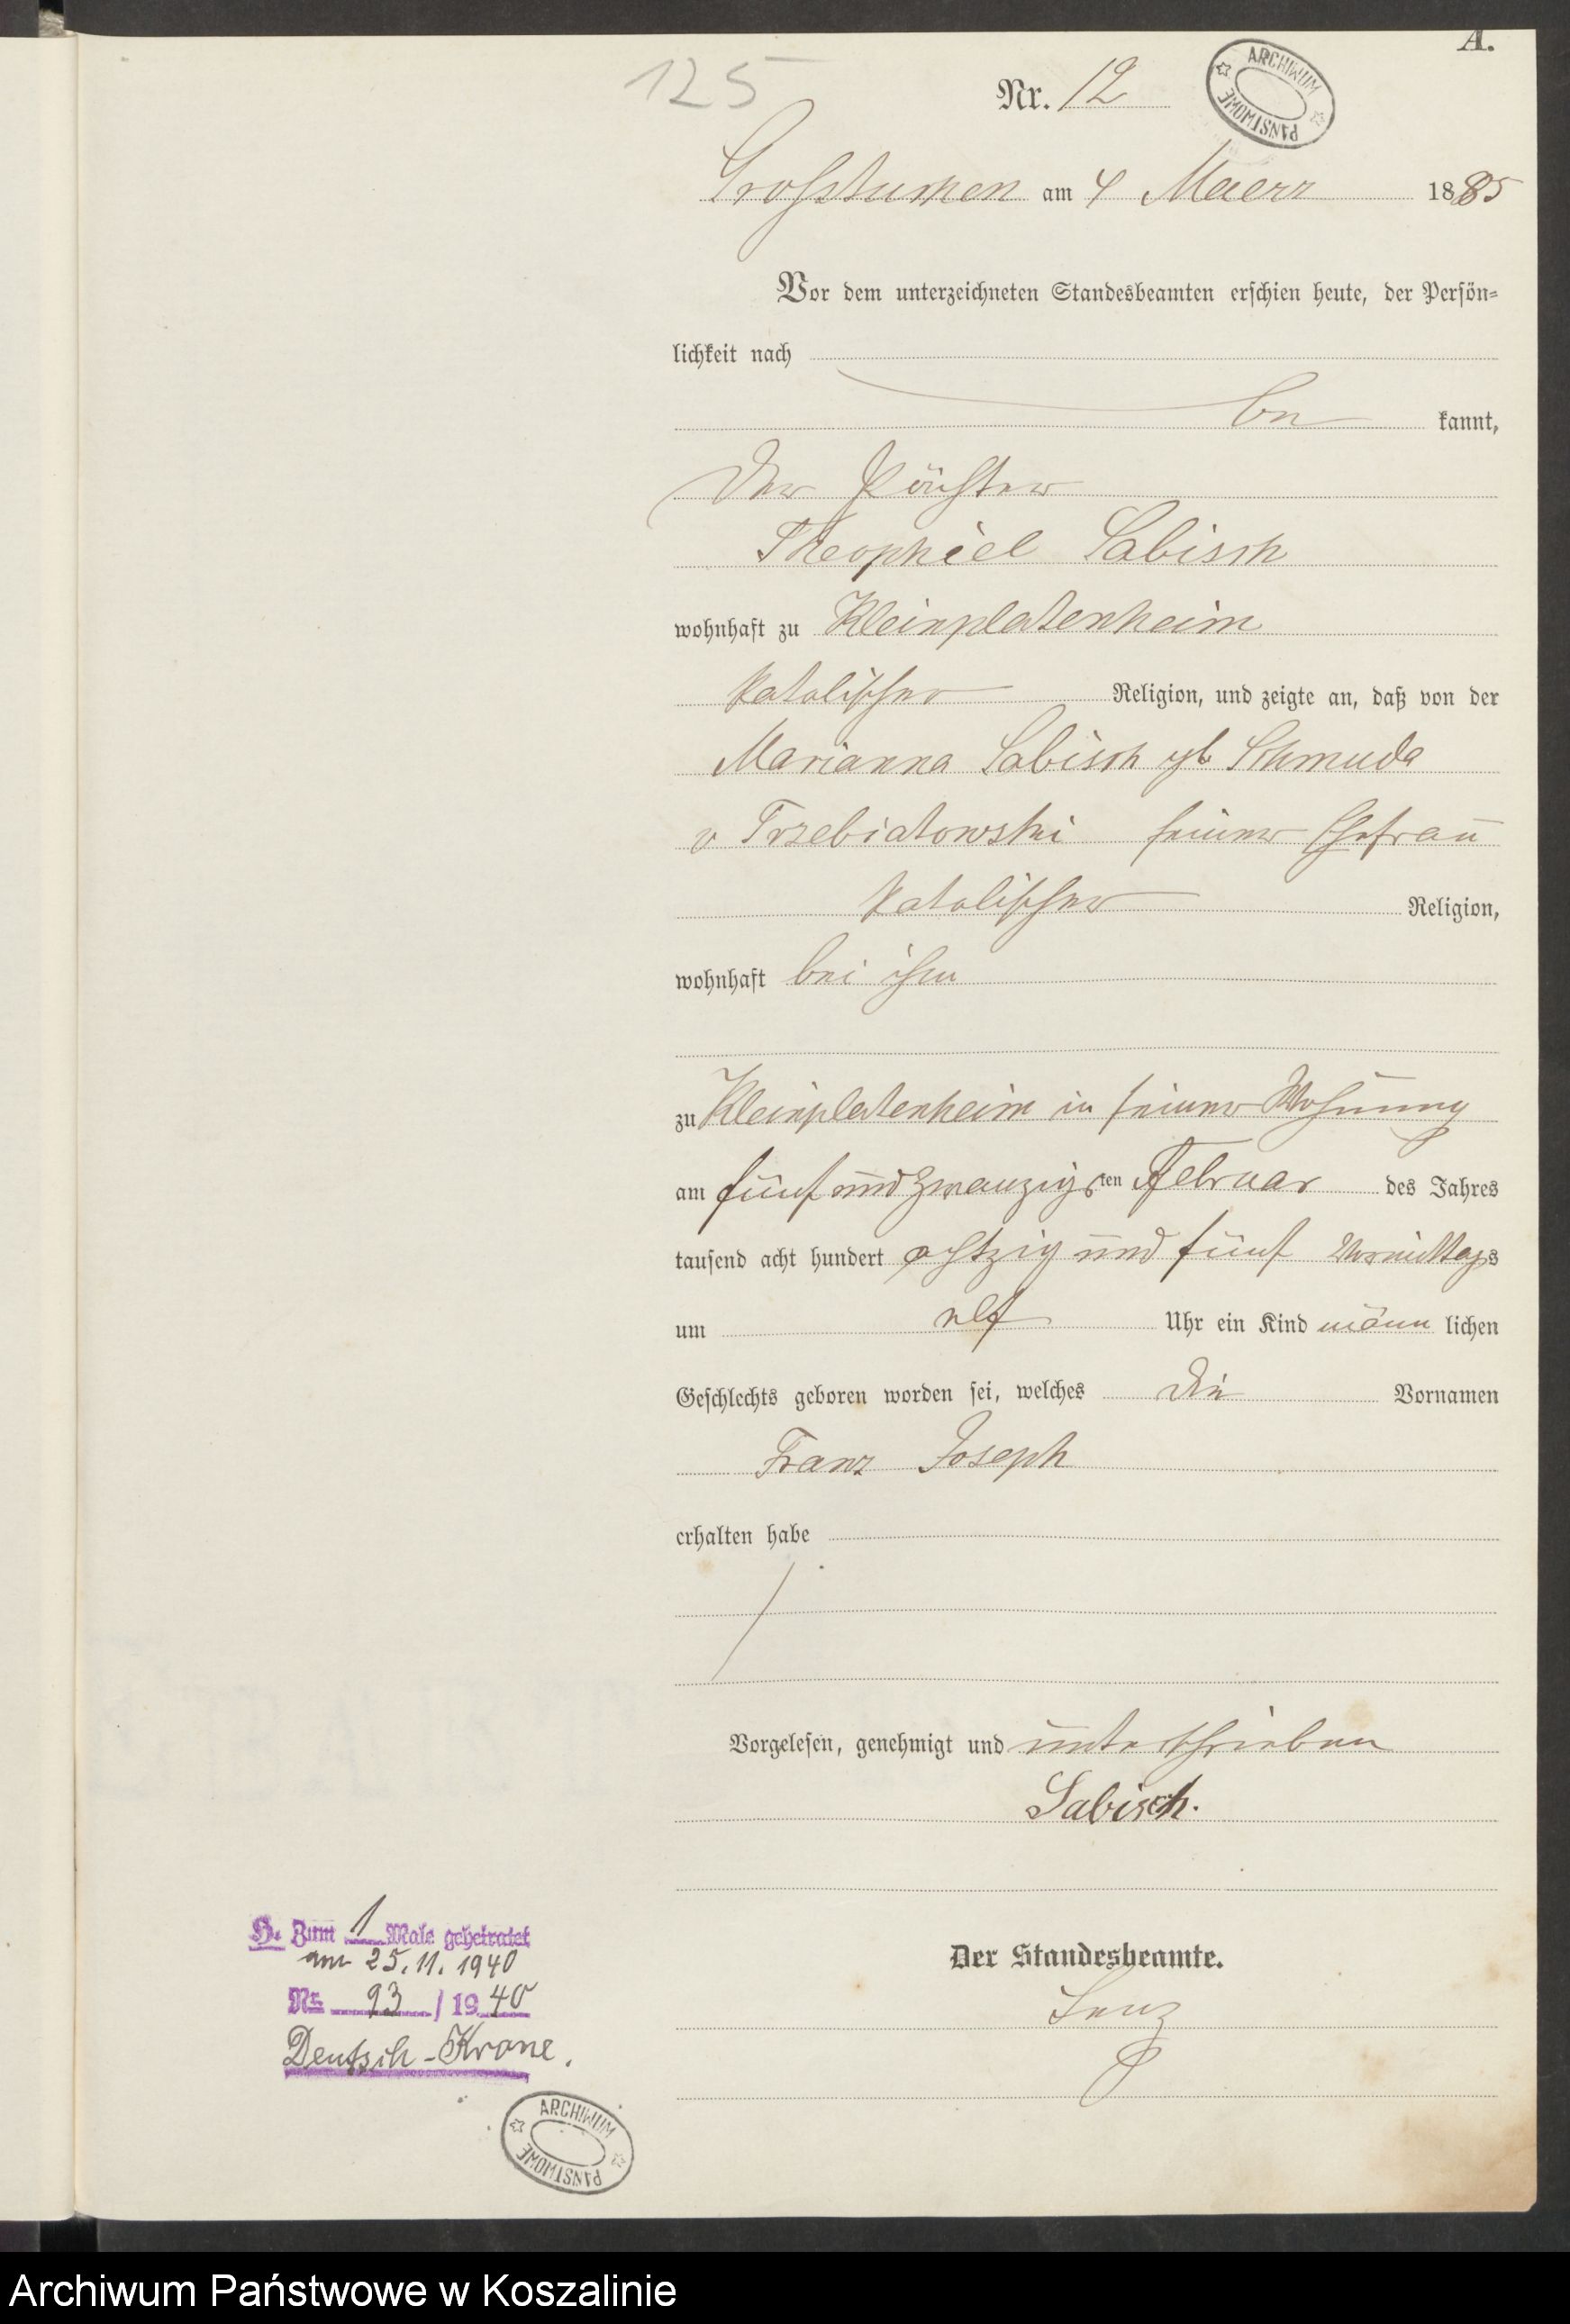 A.
125
Nr. 12
ARCHIWUM PAŃSTWOWE
Grosstuchen am 4 Maerz 1885
Vor dem unterzeichneten Standesbeamten erschien heute, der Persön=
lichkeit nach
be kannt,
der
Theophiel Sabisch
wohnhaft zu Kleinplatenheim
katolischer Religion, und zeigte an, daß von der
Marianna Sabisch gb Schmuda
v Trzebiatowski seiner Ehefrau
katolischer Religion,
wohnhaft bei ihm
zu Kleinplatenheim in seiner Wohnung
am fünf und zwanzigsten Februar des Jahres
tausend acht hundert achtzig und fünf Vormittags
um elf Uhr ein Kind männ lichen
Geschlechts geboren worden sei, welches die Vornamen
Franz Joseph
erhalten habe
Vorgelesen, genehmigt und unterschrieben
Sabisch.
Der Standesbeamte.
Lenz
H. Zum 1 Male geheiratet
am 25.11.1940
Nr. 93 / 1940
Deutsch-Krone.
ARCHIWUM PAŃSTWOWE
Archiwum Państwowe w Koszalinie